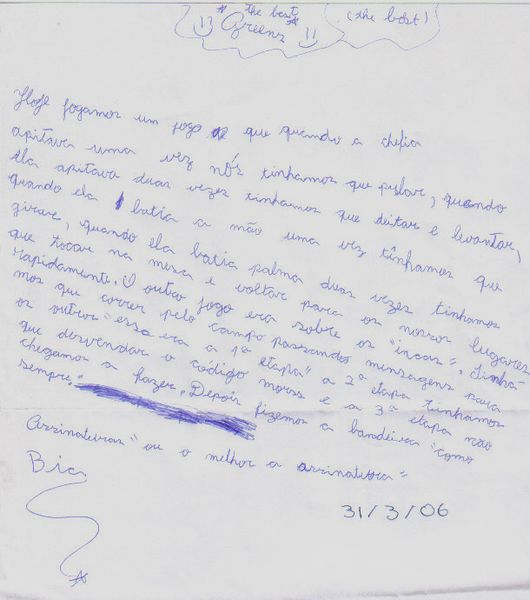 the best
Greenz
(the best)
Hoje jogamos um jogo que quando a chefia
apitava uma vez nós tinhamos que pular, quando
ela apitava duas vezes tinhamos que deitar e levantar,
quando ela batia a mão uma vez tinhamos que
girar, quando ela batia palma duas vezes tinhamos
que tocar na mesa e voltar para os nossos lugares
rapidamente. O outro jogo era sobre os "incas". Tinha-
mos que correr pelo campo passando mensagens para
os outros "essa era a 1ª etapa" a 2ª etapa tinhamos
que desvendar o código morse e a 3ª etapa não
chegamos a fazer. Depois fizemos a bandeira "como
sempre"
Assinaturas" ou o melhor a assinatura"
Bia
31/3/06